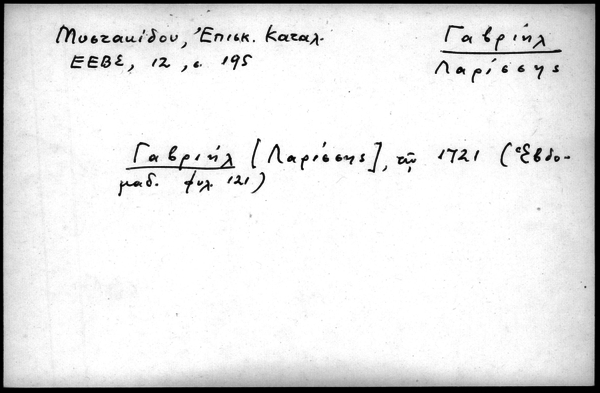 Μυστακίδου, Ἐπισκ. Καταλ.
ΕΕΒΣ, 12, σ. 195
Γαβριήλ
Λαρίσσης
Γαβριήλ [Λαρίσσης], τῷ 1721 (Ἑβδο-
μαδ. φυλ. 121)